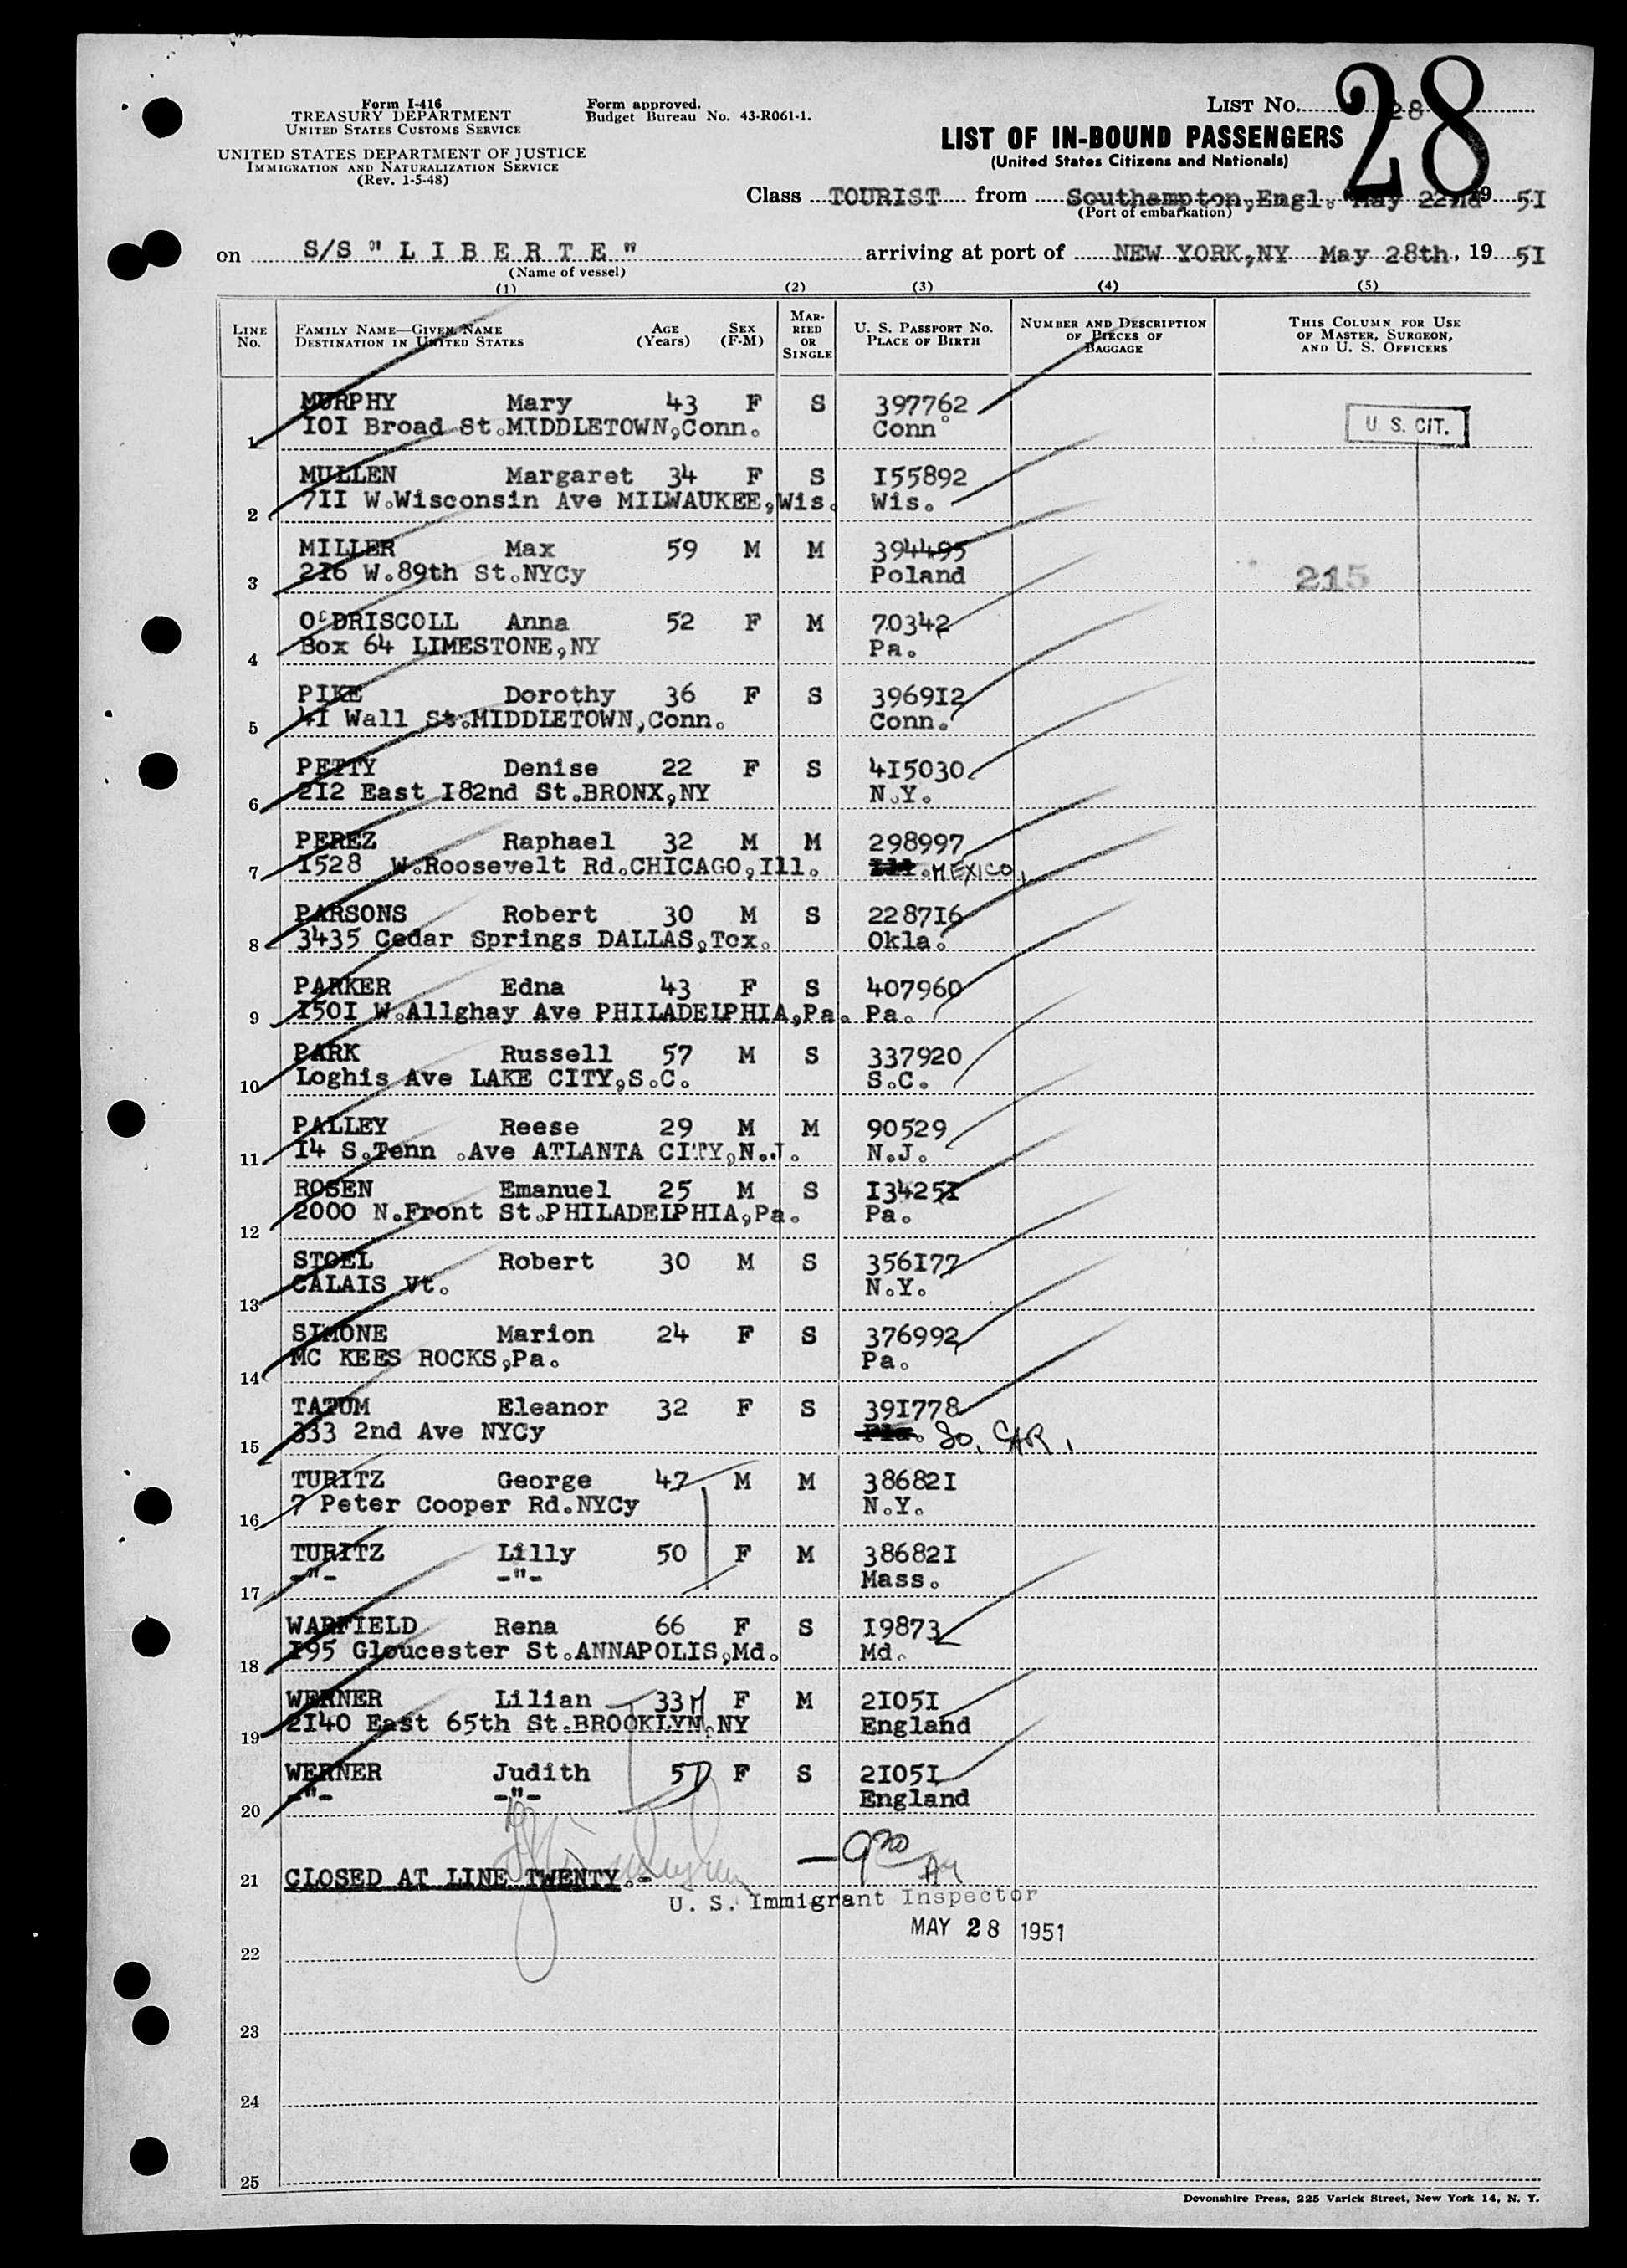 Form I-416
TREASURY DEPARTMENT
UNITED STATES CUSTOMS SERVICE
UNITED STATES DEPARTMENT OF JUSTICE
IMMIGRATION AND NATURALIZATION SERVICE
(Rev. 1-5-48)
Form approved.
Budget Bureau No. 43-R061-1.
LIST NO. 28
28
LIST OF IN-BOUND PASSENGERS
(United States Citizens and Nationals)
Class TOURIST from Southampton,Engl. May 22nd 19 5I
(Port of embarkation)
on S/S "L I B E R T E" arriving at port of NEW YORK,NY May 28th, 19 5I
(Name of vessel)
(1) (2) (3) (4) (5)
LINE No. FAMILY NAME—GIVEN NAME DESTINATION IN UNITED STATES AGE (Years) SEX (F-M) MARRIED OR SINGLE U. S. PASSPORT NO. PLACE OF BIRTH NUMBER AND DESCRIPTION OF PIECES OF BAGGAGE THIS COLUMN FOR USE OF MASTER, SURGEON, AND U. S. OFFICERS
MURPHY Mary 43 F S 397762
1 IOI Broad St.MIDDLETOWN,Conn. Conn U. S. CIT.
MULLEN Margaret 34 F S I55892
2 7II W.Wisconsin Ave MILWAUKEE,Wis. Wis.
MILLER Max 59 M M 394495
3 2I6 W.89th St.NYCy Poland 215
O'DRISCOLL Anna 52 F M 70342
4 Box 64 LIMESTONE,NY Pa.
PIKE Dorothy 36 F S 3969I2
5 4I Wall St.MIDDLETOWN,Conn. Conn.
PETTY Denise 22 F S 4I5030
6 2I2 East I82nd St.BRONX,NY N.Y.
PEREZ Raphael 32 M M 298997
7 I528 W.Roosevelt Rd.CHICAGO,Ill. Ill. MEXICO
PARSONS Robert 30 M S 2287I6
8 3435 Cedar Springs DALLAS,Tex. Okla.
PARKER Edna 43 F S 407960
9 I50I W.Allghay Ave PHILADELPHIA,Pa. Pa.
PARK Russell 57 M S 337920
10 Loghis Ave LAKE CITY,S.C. S.C.
PALLEY Reese 29 M M 90529
11 I4 S.Tenn .Ave ATLANTA CITY,N.J. N.J.
ROSEN Emanuel 25 M S I3425I
12 2000 N.Front St.PHILADELPHIA,Pa. Pa.
STOEL Robert 30 M S 356I77
13 CALAIS Vt. N.Y.
SIMONE Marion 24 F S 376992
14 MC KEES ROCKS,Pa. Pa.
TATUM Eleanor 32 F S 39I778
15 333 2nd Ave NYCy Fla. So. CAR.
TURITZ George 47 M M 38682I
16 7 Peter Cooper Rd.NYCy N.Y.
TURITZ Lilly 50 F M 38682I
17 -"- -"- Mass.
WARFIELD Rena 66 F S I9873
18 I95 Gloucester St.ANNAPOLIS,Md. Md.
WERNER Lilian 33 M F M 2I05I
19 2I40 East 65th St.BROOKLYN,NY England
WERNER Judith 5 D F S 2I05I
20 -"- -"- England
— 9 30 AM
21 CLOSED AT LINE TWENTY.-
U. S. Immigrant Inspector
MAY 28 1951
22
23
24
25
Devonshire Press, 225 Varick Street, New York 14, N. Y.